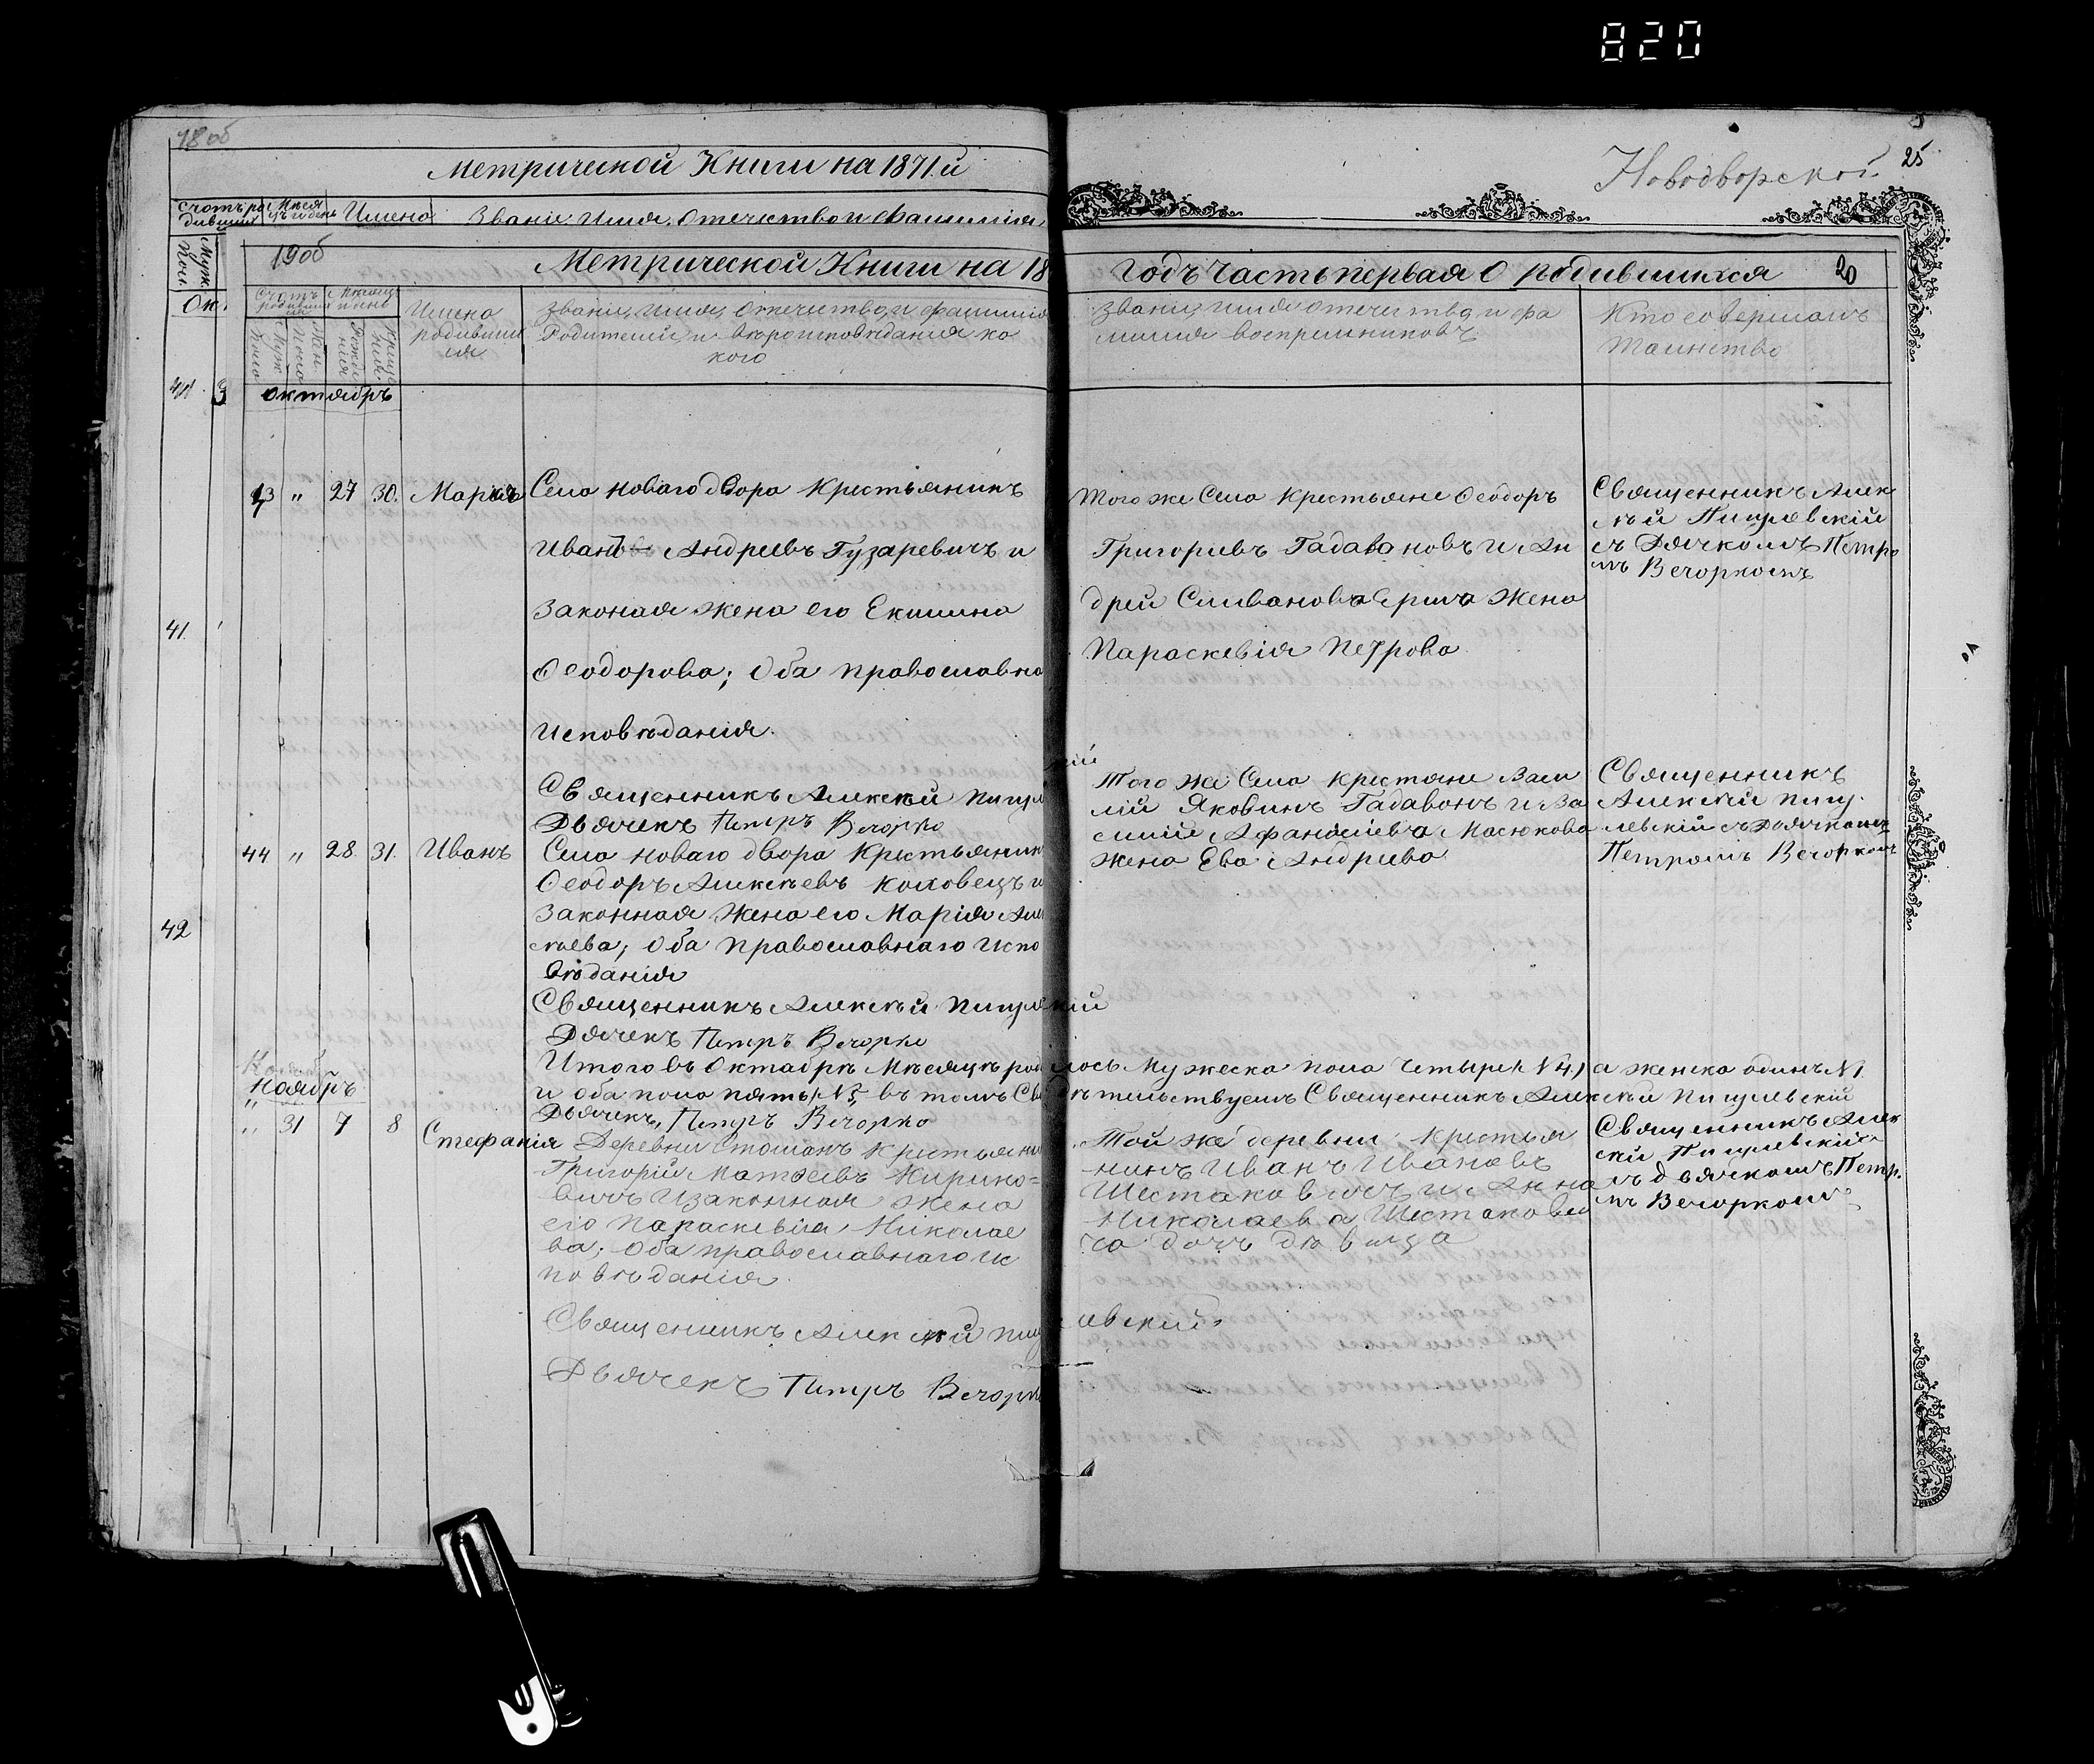 820
18 об
Метрической Книги на 1871 й
Новодворской
25
Счотъ ро
дившихся
Мѣся
цъ и день
Имена
Званіе, Имя, Отечество и Фамилія,
Муж.
Ок
41
42
19 об
Метрической Книги на 18
годъ часть первая о родившихся
20
Счотъ
родивши
Мѣсяцъ
и день
Муж.
Жен.
Имена
родивши
ся
Званіе, Имя, Отечество, и фамилія
Родителей, и вѣроисповѣданія ка
кого
Званіе имя отечество, и фа
милія воспріемниковъ
Кто совершалъ
таинство
октябрь
43 " 27 30.
Села Новаго двора Крестьянинъ
Андреевъ Гузаревичъ и
Законная жена его Екилина
Ѳеодорова; Оба православна
исповѣданія.
Священникъ Алексѣй Пищ
Дьячекъ Петръ Вечорко
Того же Села Крестьяне Ѳеодоръ
Григорьевъ Гадавановъ и Ан
дрей Силвановъ жена
Параскевія Петрова
Священникъ Алек
сѣй Пищлевскій
съ Дячкомъ Петро
мъ Вечоркомъ
44 " 28. 31. Иванъ
Села Новаго двора Крестьянин
Ѳеодоръ Алексѣевъ Коховецъ и
Законная жена его Марія Але
ксѣева; Оба православнаго испо
вѣданія
Священникъ Алексѣй Пищлевскій
Дячекъ Петръ Вечорко
Того же Села крестяне Васи
лій Яковинъ Гадавонъ и Ва
силія Афанасіева Масюкова
жена Ева Андреева
Священникъ
Алексѣй Пищ
левскій съ Дьячкомъ
Петромъ Вечоркомъ
Итого въ Октябрѣ Мѣсяцѣ родилось Мужеска пола Четыре №4, а женска одинъ №1
и оба пола пять №5, въ томъ Свидѣтельствуемъ Священникъ Алексѣй Пищлевскій
Дьячекъ, Петръ Вечорко
ноябрь
" 31 7 8 Стефанія
Деревни Крестьянин
Григорій Матѳеевъ Кирико=
вичъ и законная жена
его Параскевія Николае
ва; Оба православнаго ис
повѣданія.
Священникъ Алексѣй Пищлевскій
Дьячекъ Петръ Вечорко
Той же деревни Крестья
нинъ Иванъ Ивановъ
Шестаковичъ и Анна
Николаева Шестакови
ча дочь дѣвица
Священникъ Алек
сѣй Пищлевскій
съ дьячкомъ Петр
мъ Вечоркомъ